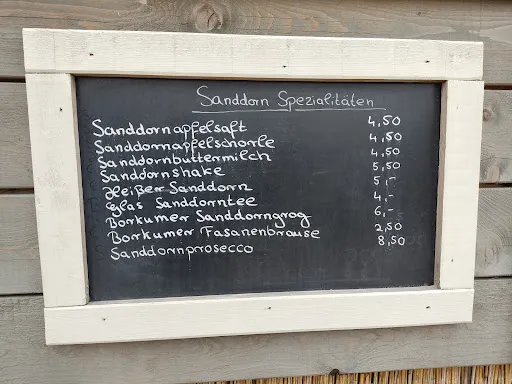 Sanddorn Spezialitäten
Sanddornapfelsaft 4,50
Sanddornapfelschorle 4,50
Sanddornbuttermilch 4,50
Sanddornshake 5,50
Heißer Sanddorn 5,-
Glas Sanddorntee 4,-
Borkumer Sanddorngrog 6,-
Borkumer Fasanenbrause 2,50
Sanddornprosecco 8,50